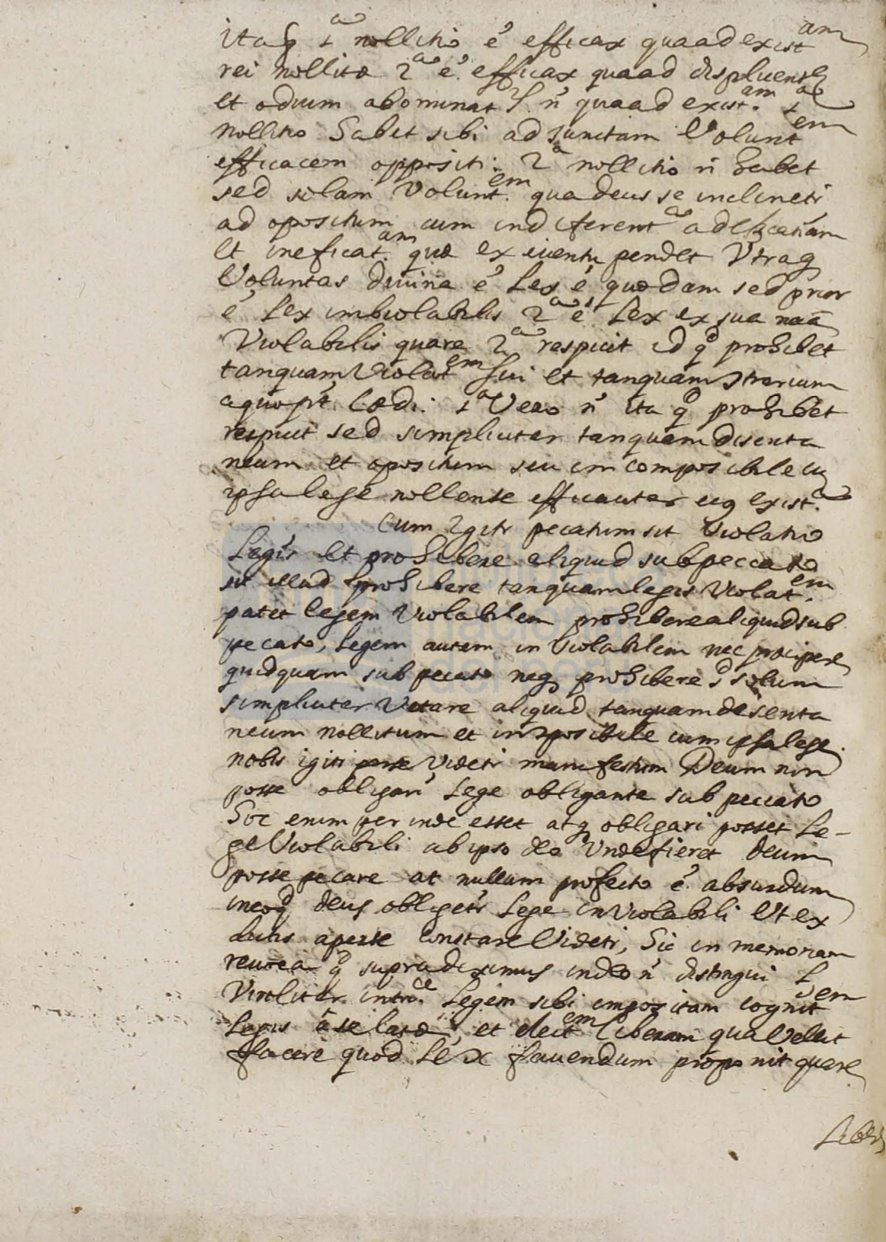 itaq 1ª nollitio é efficax quaad existam
rei nollitæ 2ª é efficax quaad displicent
et odium abominat n̄ quaad exist.am 1ª
nollitio habet sibi adjunctam Voluntem
efficacem oppositi: 2ª nollitio n̄ habet
sed solam Voluntem qua deus se inclineti
ad opositum cum indiferentª ad efficatiam
et ineficat.am quæ ex euentu pendet Vtraq
Voluntas diuina é Lex é quædam sed prior
é Lex imbiolabilis 2ª é Lex ex sua naā
Violabilis quare 2ª respicit id qd prohibet
tanquam Violatem sui et tanquam strarium
a quo pt. Lædi: 1ª Vero n̄ ita qd prohibet
respicit sed simpliciter tanquam disenta
neum et opositum seu imcomposibile cu
ipsa lege nollente efficaciter eiq exist.ª
Cum igitr pecatum sit Violatio
Legis et prohibere aliquid sub peccato
sit illud prohibere tanquam legis Violat.em
patet legem Violabilem prohibere aliquid sub
pecato, Legem autem inviolabilem nec præcipere
quidquam sub pecato neq prohibere sd solum
simpliciter Vetare aliquid tanquam desenta
neum nollitum et inposibile cum ipsa lege.
nobis igitr Videtr manifestum Deum non
posse obligari Lege obligante sub peccato
Hoc enim perinde esset atq obligari posset Le-
ge Violabili ab ipso deo Vnde fieret deum
posse pecare at nullum profecto é absurdum
ineo qd deus obligetr Lege inViolabili Vt ex
dictis aperte Constare Videtr, Sic in memoriam
reuoca qd supra diximus in deo n̄ distingui
Virtliter intrce. Legem sibi impozitam cognitem
Legis á se latæ, et elect.em liberam qua Vellit
facere quod Lex fauendum proponit quare
Liber